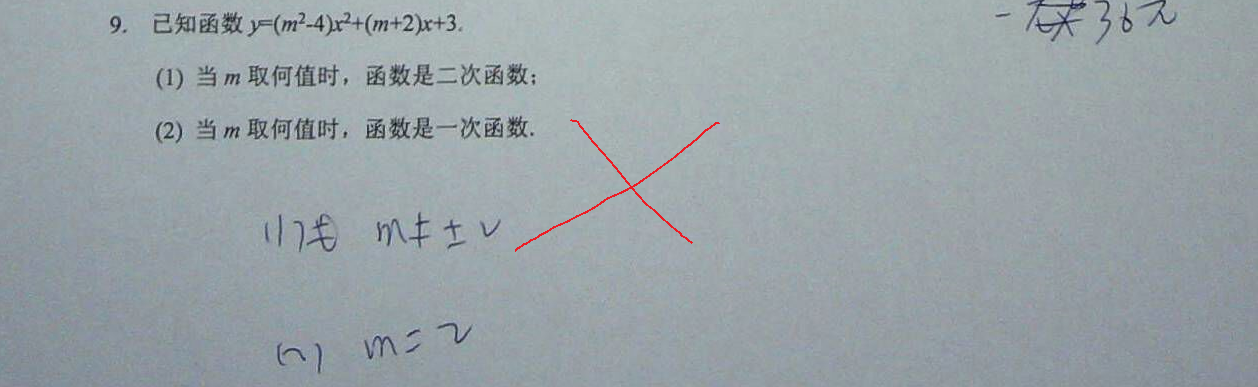 9. 已知函数 y=(m²-4)x²+(m+2)x+3.
36元
(1) 当 m 取何值时，函数是二次函数；
(2) 当 m 取何值时，函数是一次函数.
(1) m≠±2
(2) m=2